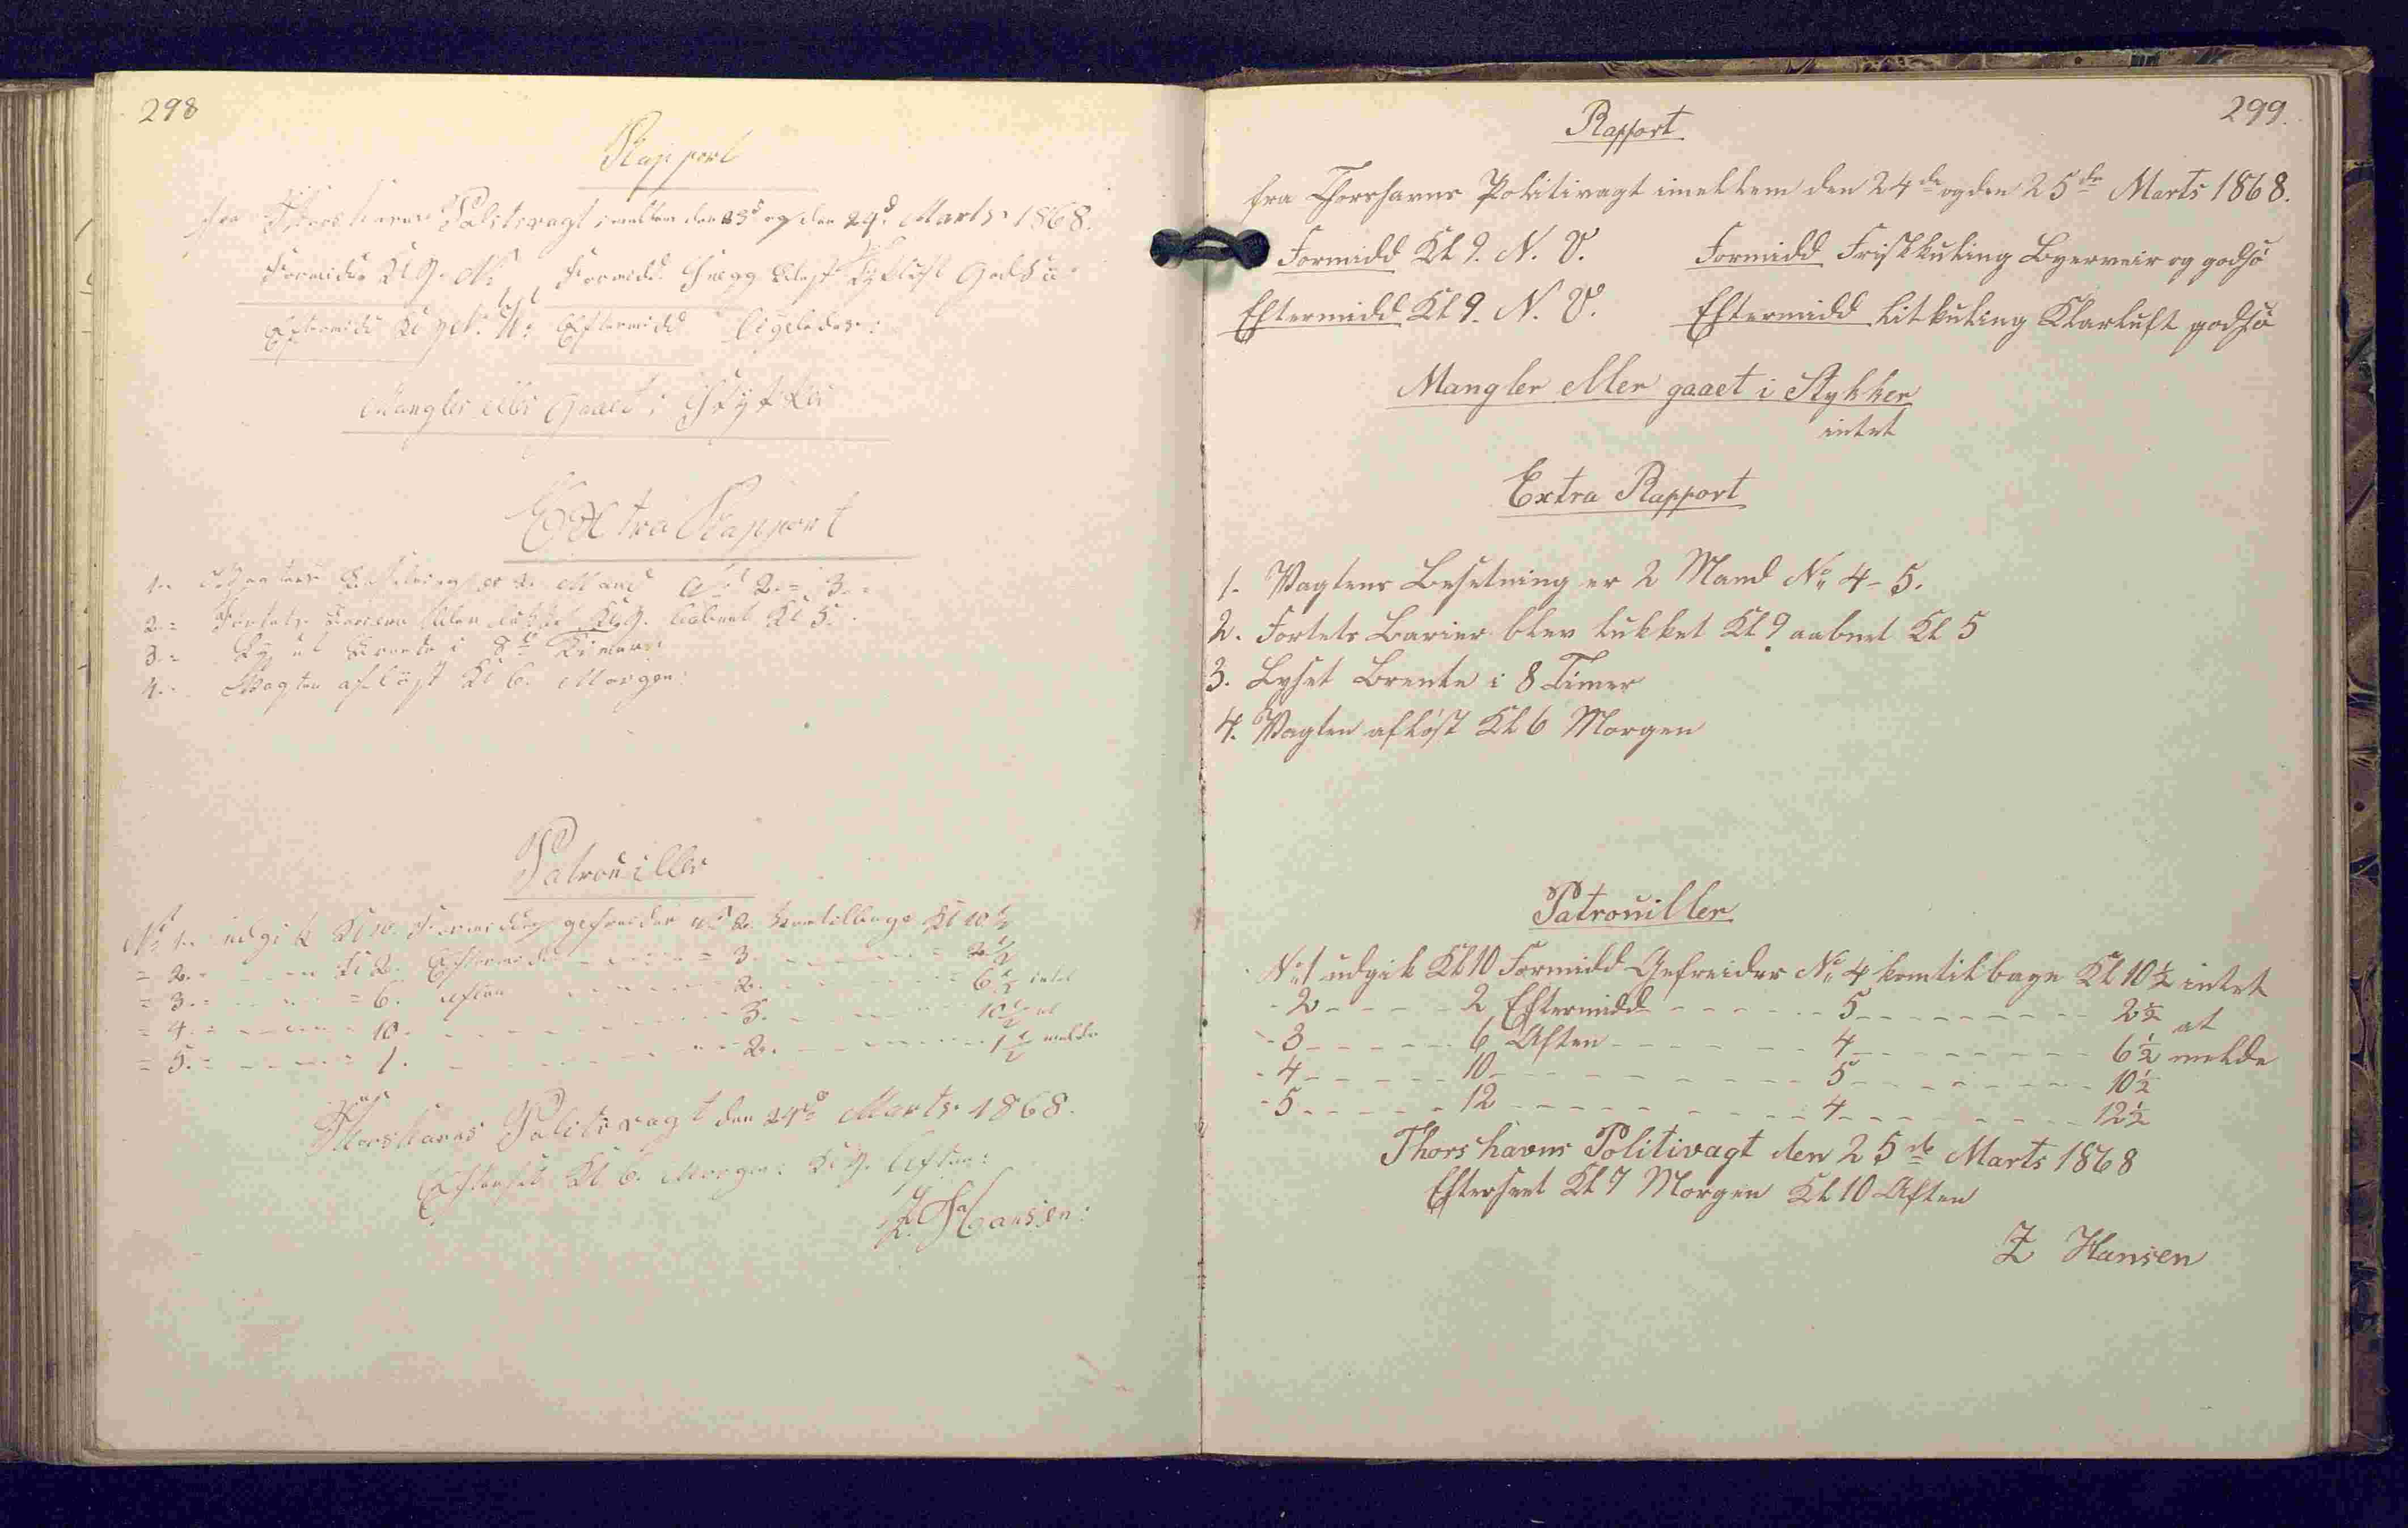 298
Rapport
fra Thorshavns Politivagt imellem den 23d og den 24d Marts 1868.
Formidd Kl 9. N: Formidd Snegg Kulest Tykluft God Sö
Eftermidd Kl 9 N: Eftermidd ligeledes:
Mangler eller gaaet i Stykker
Extra Rapport
1. Vagtens Besetning er 2 Mand No 2 = 3.
2. = Fortets Bariere blev lukket Kl 9. aabnet Kl 5.
3. = Lyset Brente i 8 Timer:
4. = Vagten aflöst Kl 6. Morgen:
Patrouiller
No 1. udgik Kl 10. Formiddag gefreider No 2. kom tilbage Kl 10 1/2
= 2. - - - Kl 2. Eftermidd - - - = 3. - - - = 2 1/2
= 3. - - - = 6. Aften - - - 2. - - - = 6 1/2 intet
= 4. = - - - 10. - - - 3. - - - 10 1/2 at
= 5. = - - - 1. - - - 2. - - - 1 1/2 melde
Thorshavns Politivagt den 24de Marts 1868.
Efterseet Kl 6. Morgen: Kl 9. Aften:
Z. Hansen:
299.
Rapport
fra Thorshavns Politivagt imellem den 24de og den 25de Marts 1868.
Formidd Kl 9. N. V. Formidd Friskkuling Byerveir og godsö
Eftermidd Kl 9. N. V. Eftermidd litkuling Klarluft godsö
Mangler eller gaaet i Stykker
intet
Extra Rapport
1. Vagtens Besetning er 2 Mand No 4 - 5.
2. Fortets Barier blev lukket Kl 9 aabnet Kl 5
3. Lyset Brente i 8 Timer
4. Vagten aflöst Kl 6 Morgen
Patrouiller
No 1 udgik Kl 10 Formidd Gefreider No 4 kom tilbage Kl 10 1/2 intet
- 2 - - - - 2 Eftermidd - - - - 5 - - - - 2 1/2 at
- 3 - - - - 6 Aften - - - - 4 - - - - 6 1/2 melde
- 4 - - - - 10 - - - - 5 - - - - 10 1/2
- 5 - - - - 12 - - - - 4 - - - - 12 1/2
Thorshavns Politivagt den 25de Marts 1868
Efterseet Kl 7 Morgen Kl 10 Aften
Z Hansen